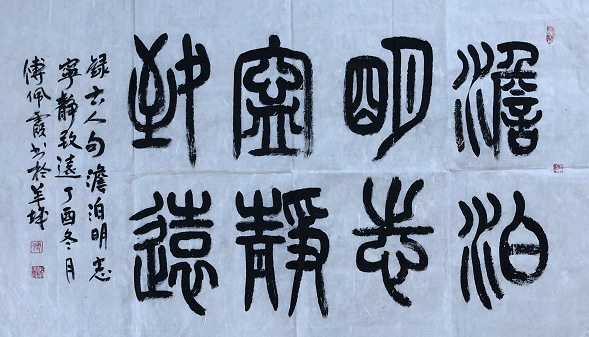 澹泊
明志
寧靜
致遠
録古人句澹泊明志
寧静致遠丁酉冬月
傅佩霞书於羊城